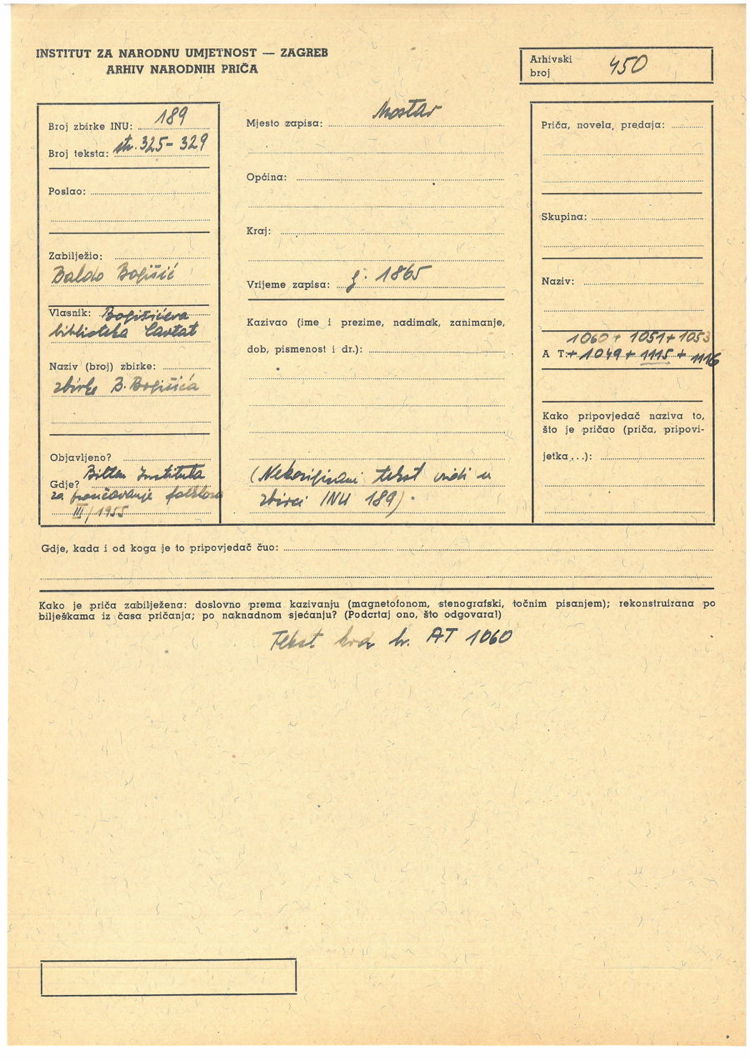 INSTITUT ZA NARODNU UMJETNOST — ZAGREB
ARHIV NARODNIH PRIČA
Arhivski
broj 450
Broj zbirke INU: 189
Broj teksta: str. 325-329
Poslao:
Zabilježio:
Baldo Bogišić
Vlasnik: Bogišićeva
biblioteka Cavtat
Naziv (broj) zbirke:
zbirka B. Bogišića
Objavljeno?
Gdje? Bilten Instituta
za proučavanje folklora
III/1955
Mjesto zapisa: Mostar
Općina:
Kraj:
Vrijeme zapisa: g. 1865
Kazivao (ime i prezime, nadimak, zanimanje,
dob, pismenost i dr.):
(Nekorigirani tekst vidi u
zbirci INU 189).
Priča, novela, predaja:
Skupina:
Naziv:
1060 + 1051 + 1053
A T. + 1049 + 1115 + 1116
Kako pripovjedač naziva to,
što je pričao (priča, pripovi-
jetka...):
Gdje, kada i od koga je to pripovjedač čuo:
Kako je priča zabilježena: doslovno prema kazivanju (magnetofonom, stenografski, točnim pisanjem); rekonstruirana po
bilješkama iz časa pričanja; po naknadnom sjećanju? (Podcrtaj ono, što odgovara!)
Tekst kod br. AT 1060